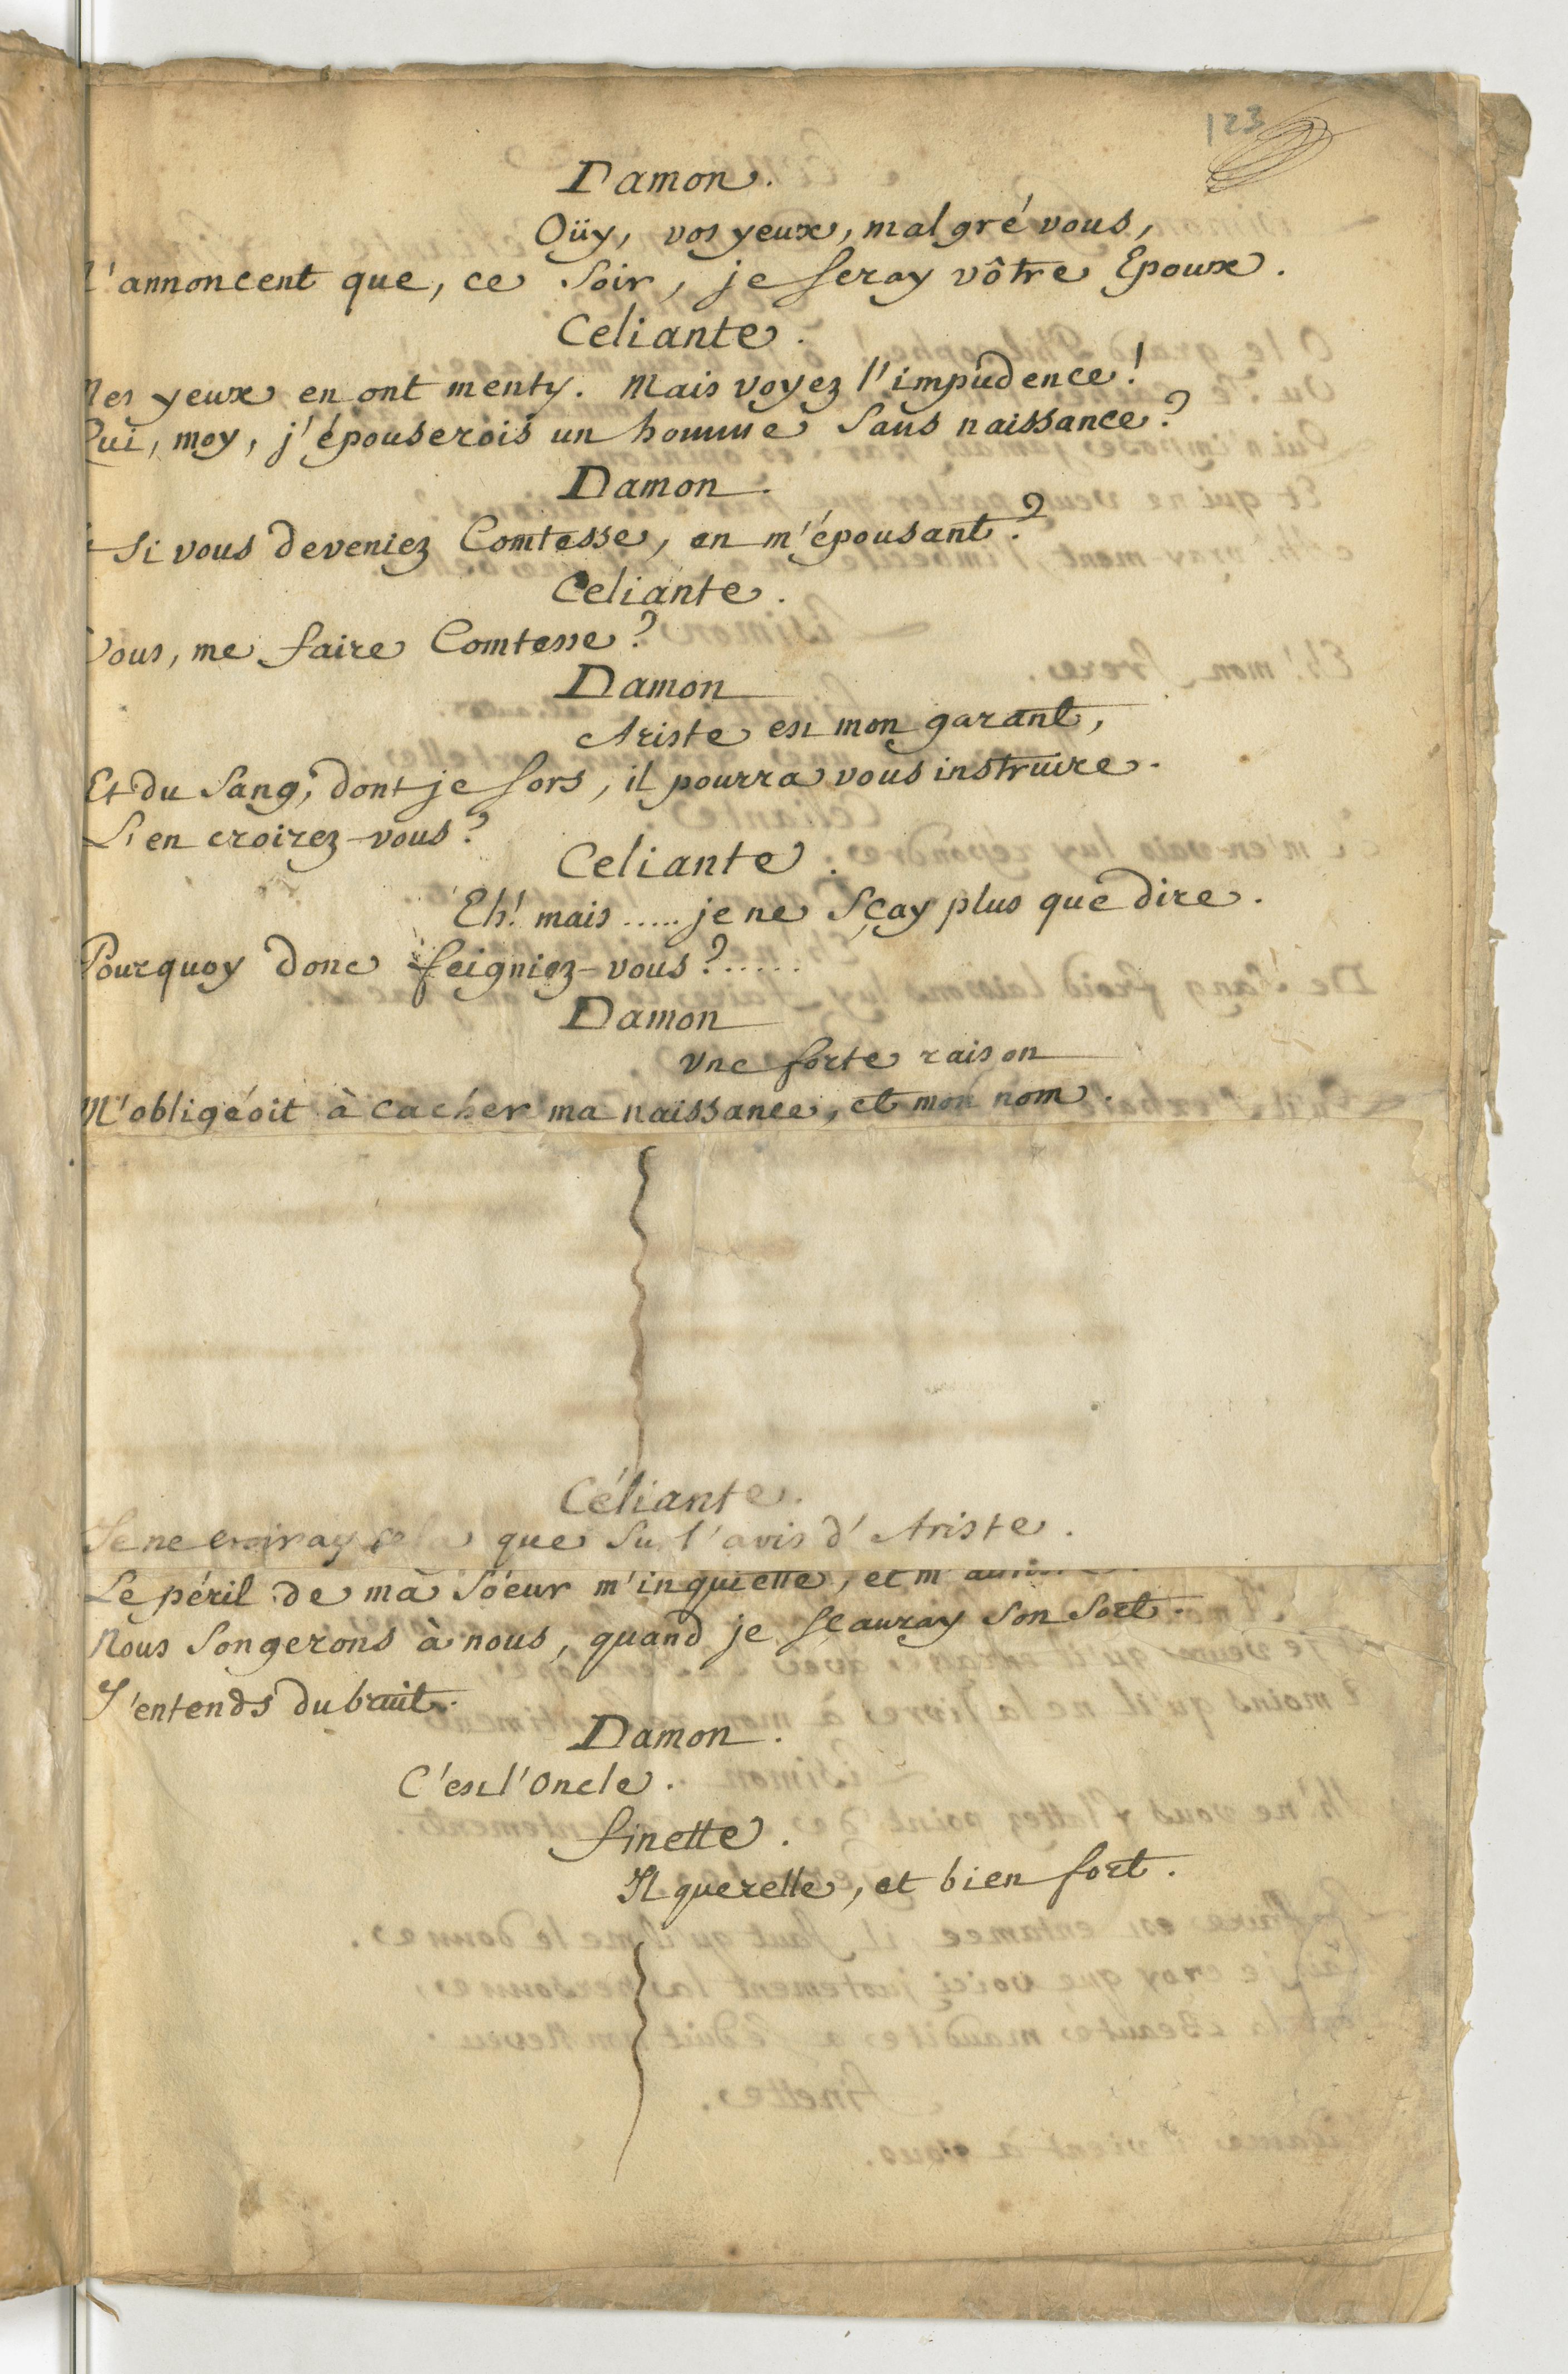 123
Damon.
Oüy, vos yeux, malgré vous,
M'annoncent que, ce Soir, je Seray vôtre Epoux.
Celiante.
Mes yeux en ont menty. Mais voyez l'impudence!
Qui, moy, j'épouserois un homme Sans naissance?
Damon.
Si vous deveniez Comtesse, en m'épousant?
Celiante.
Vous, me faire Comtesse?
Damon
Ariste est mon garant,
Et du Sang, dont je Sors, il pourra vous instruire.
L'en croirez-vous?
Celiante.
Eh! mais ..... je ne Sçay plus que dire.
Pourquoy donc feigniez-vous? .....
Damon
Une forte raison
M'obligeoit à cacher ma naissance, et mon nom.
Céliante.
Je ne croiray cela que Sur l'avis d'Ariste.
Le péril de ma Soeur m'inquiette, et m'
Nous Songerons à nous, quand je Sçauray Son Sort.
J'entends du bruit.
Damon.
C'est l'Oncle.
finette.
Il querelle, et bien fort.